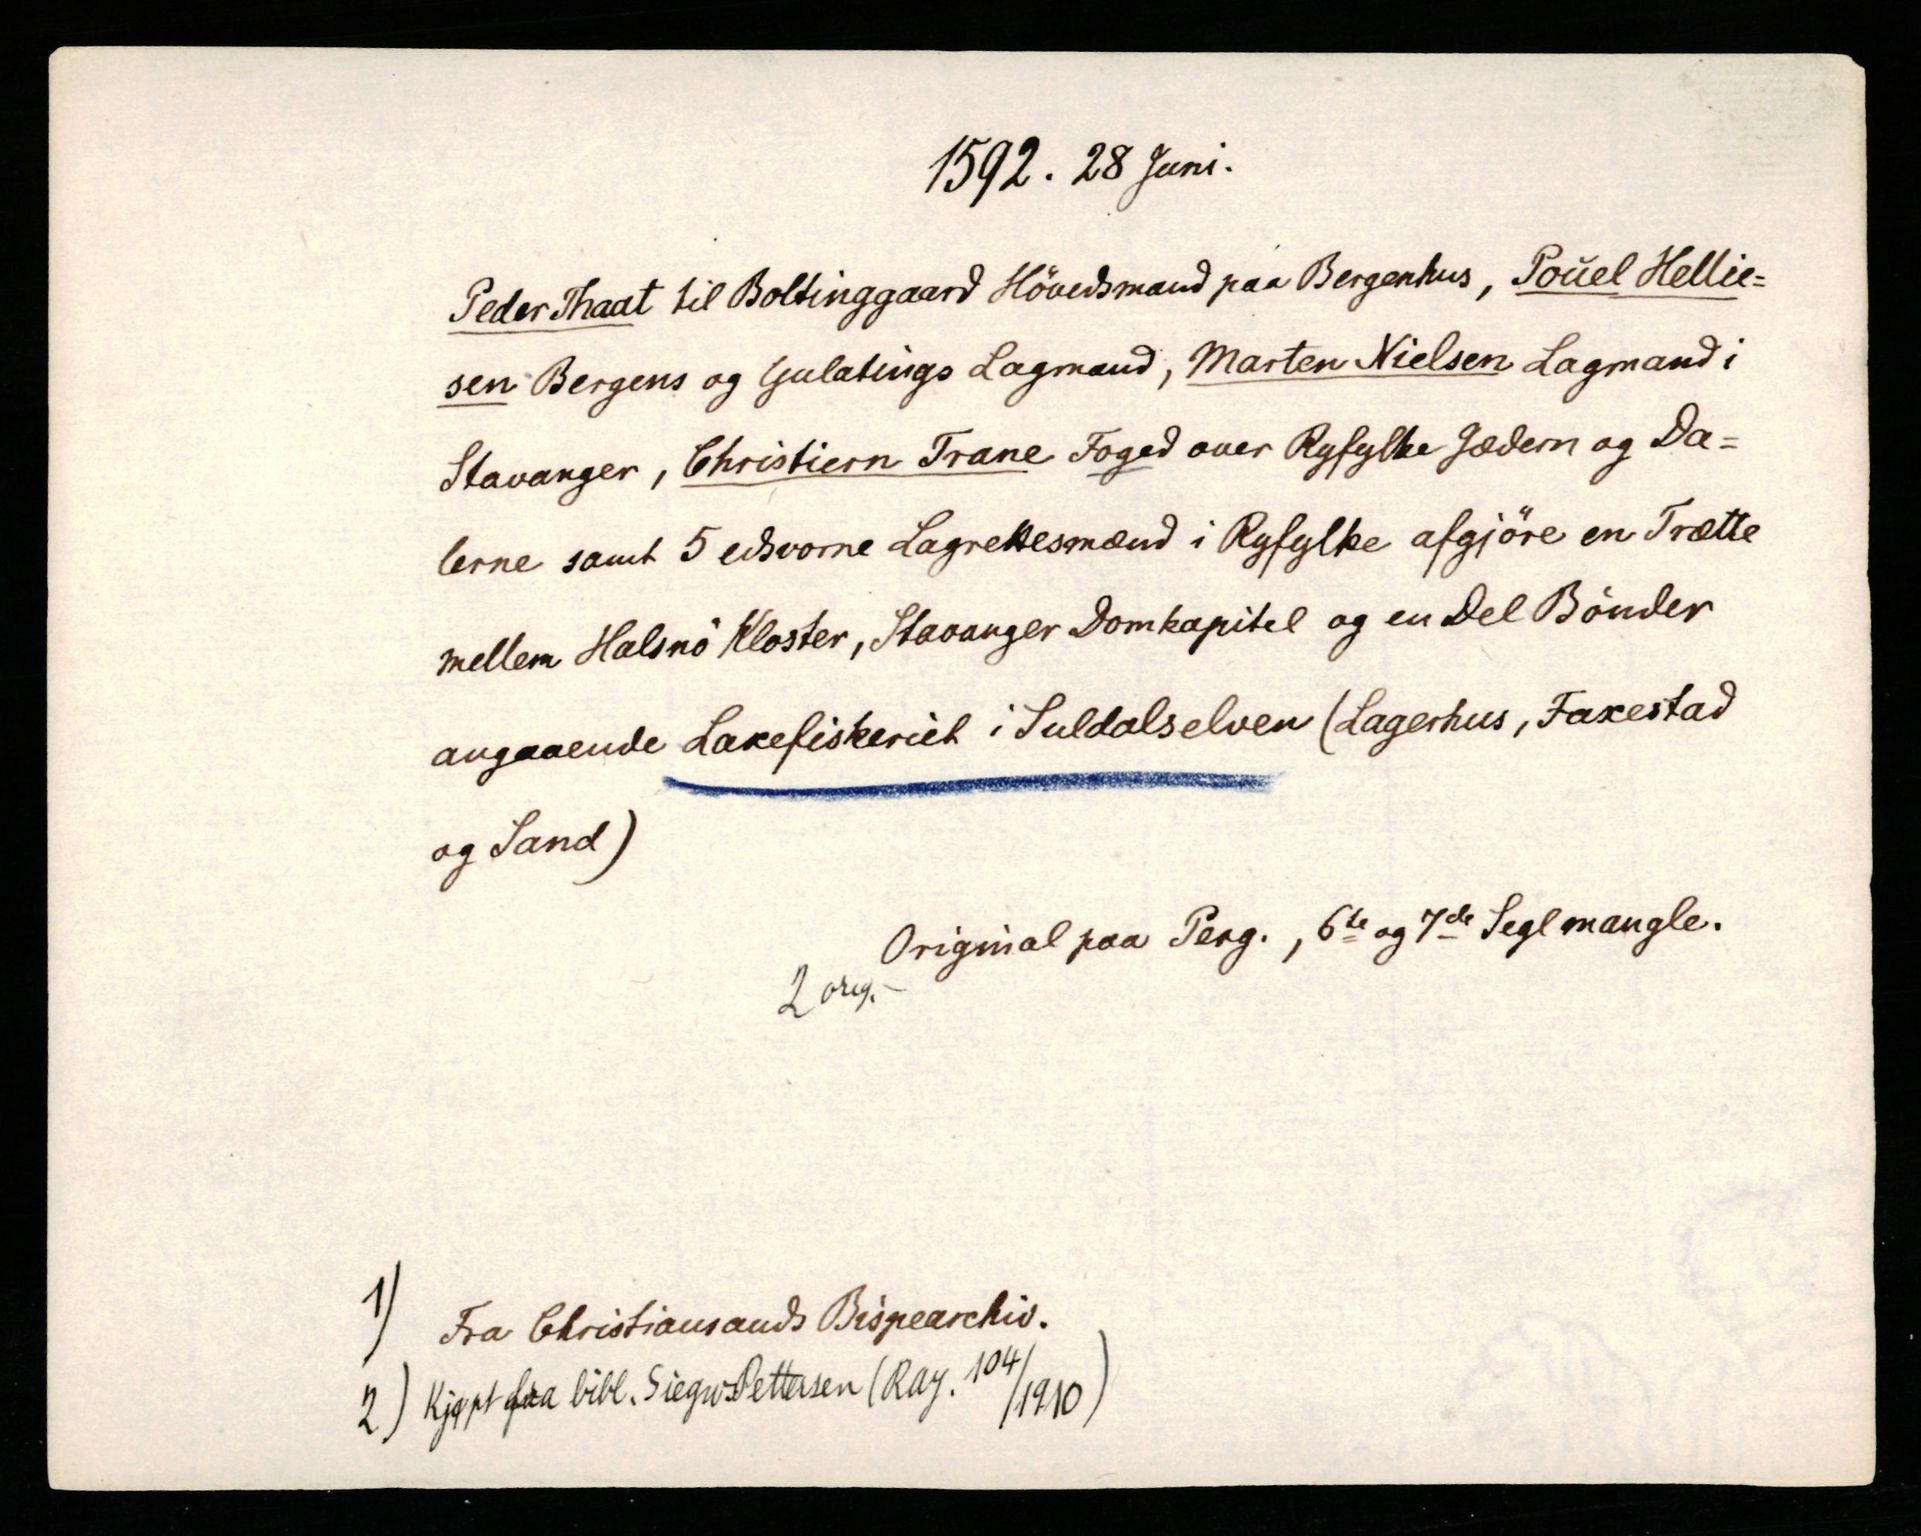 1592. 28 Juni.
Peder Thaat til Boltinggaard Hövedsmand paa Bergenhus, Poŭel Hellie=
sen Bergens og Gulatings Lagmand, Marten Nielsen Lagmand i
Stavanger, Christiern Trane Foged over Ryfylke Jædern og Da=
lerne samt 5 edsvorne Lagrettesmænd i Ryfylke afgjöre en Trætte
mellem Halsnö Kloster, Stavanger Domkapitel og en Del Bönder
angaaende Laxefiskeriet i Suldalselven (Lagerhus, Faxestad
og Sand)
Original paa Perg., 6te og 7de Segl mangle.
2 orig.-
1) Fra Christiansands Bispearchiv.
2) Kjøpt fra bibl. Siegw. Pettersen (Ray. 104/1910)